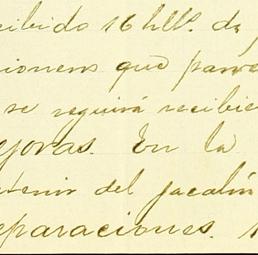 cibido 16 hlls. de
cionens que parec
se seguirá recibie
ejoras. En la
tenir del jacalin
eparaciones.